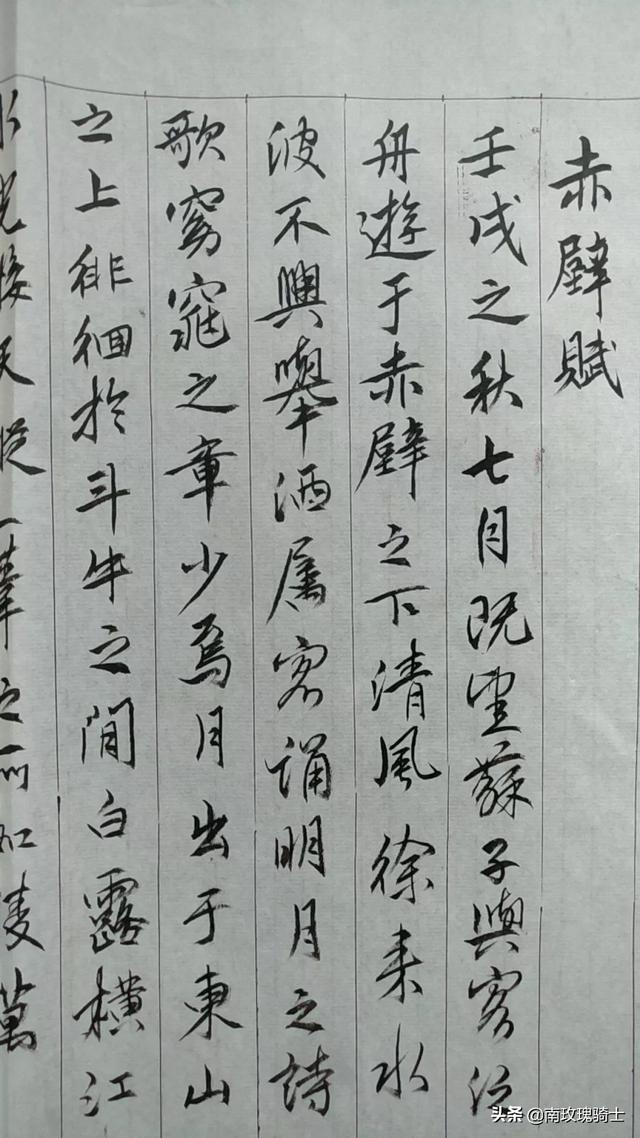 赤壁賦
壬戌之秋七月既望蘇子與客泛
舟遊于赤壁之下清風徐来水
波不興舉酒屬客誦明月之詩
歌窈窕之章少焉月出于東山
之上徘徊於斗牛之間白露橫江
水光接天縱一葦之所如淩萬
头条 @南玫瑰骑士